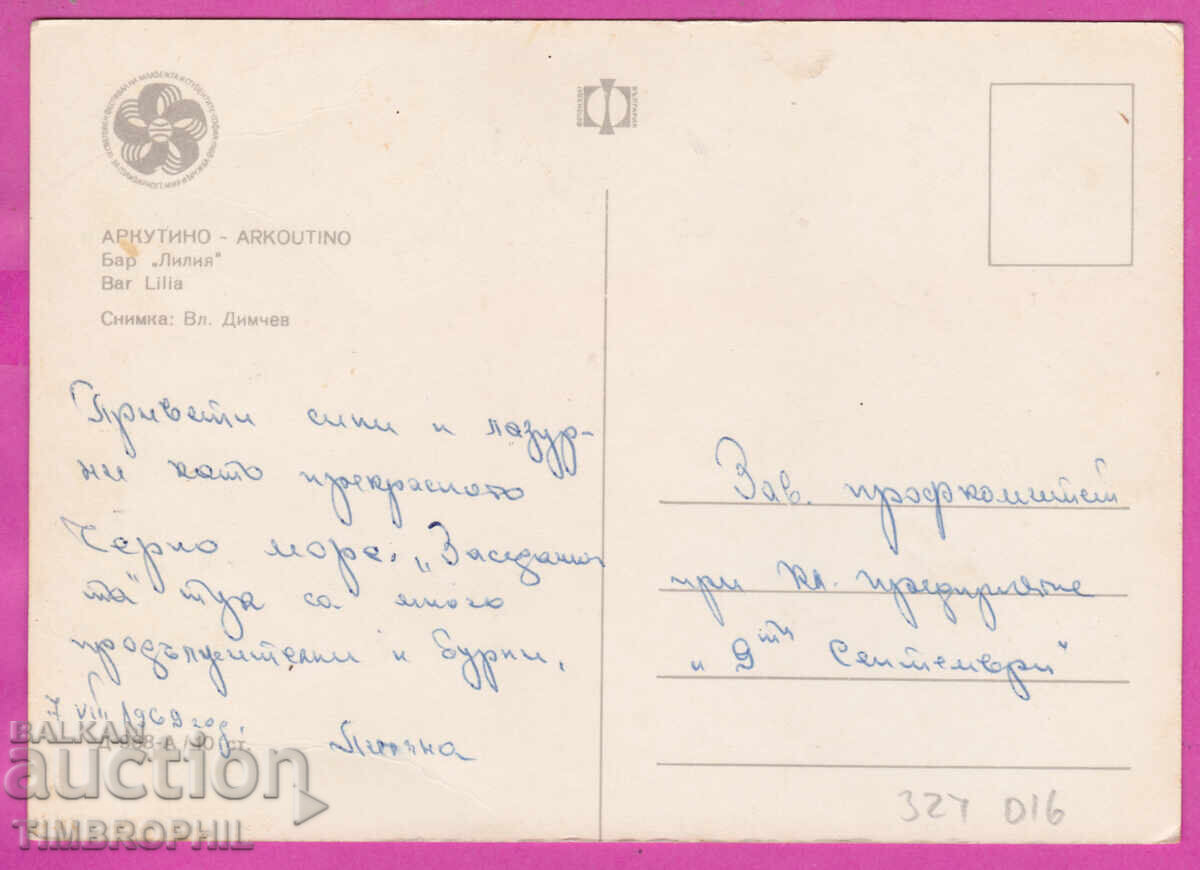 АРКУТИНО - ARKOUTINO
Бар „Лилия"
Bar Lilia
Снимка: Вл. Димчев
ФОТОИЗДАТ
БЪЛГАРИЯ
Привети сини и лазур-
ни като прекрасното
Черно море. „Заседания-
та" тук са много
продължителни и бурни.
7 VIII 1969 год.
Зав. профкомитет
при кл. предприятие
„9ти Септември"
32Y D16
BALKAN
auction
TIMBROPHIL